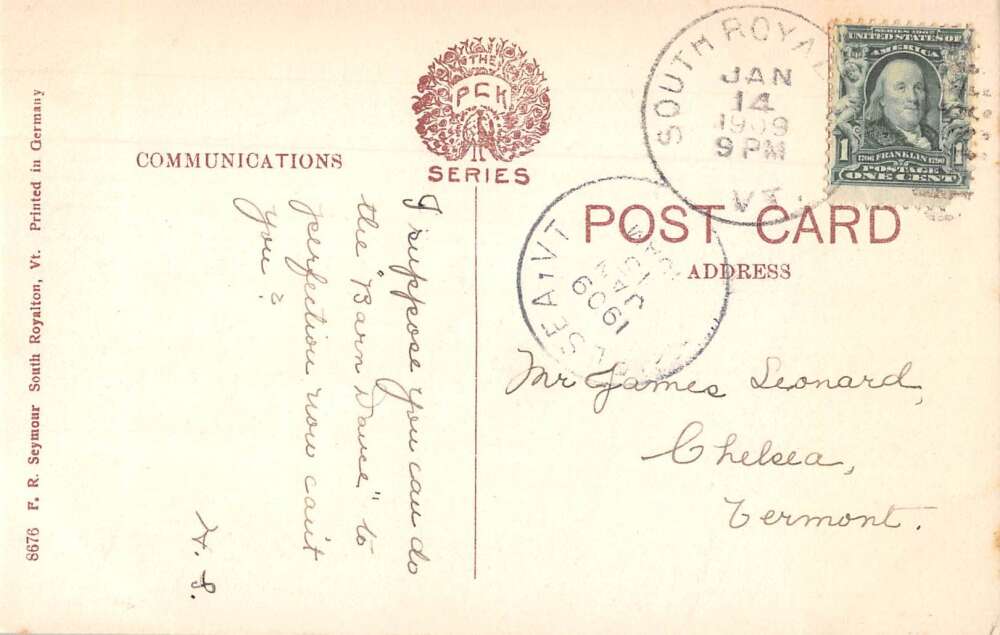 8676 F. R. Seymour South Royalton, Vt. Printed in Germany
COMMUNICATIONS
THE
PCK
SERIES
I suppose you can do
the "Barn Dance" to
perfection now can't
you?
SOUTH ROYAL
JAN
14
1909
9 PM
VT.
SERIES 1902
UNITED STATES OF
AMERICA
1 1
1706 FRANKLIN 1790
POSTAGE
ONE CENT
POST CARD
ADDRESS
LSEA VT
JAN
15
10 AM
1909
Mr James Leonard,
Chelsea,
Vermont.